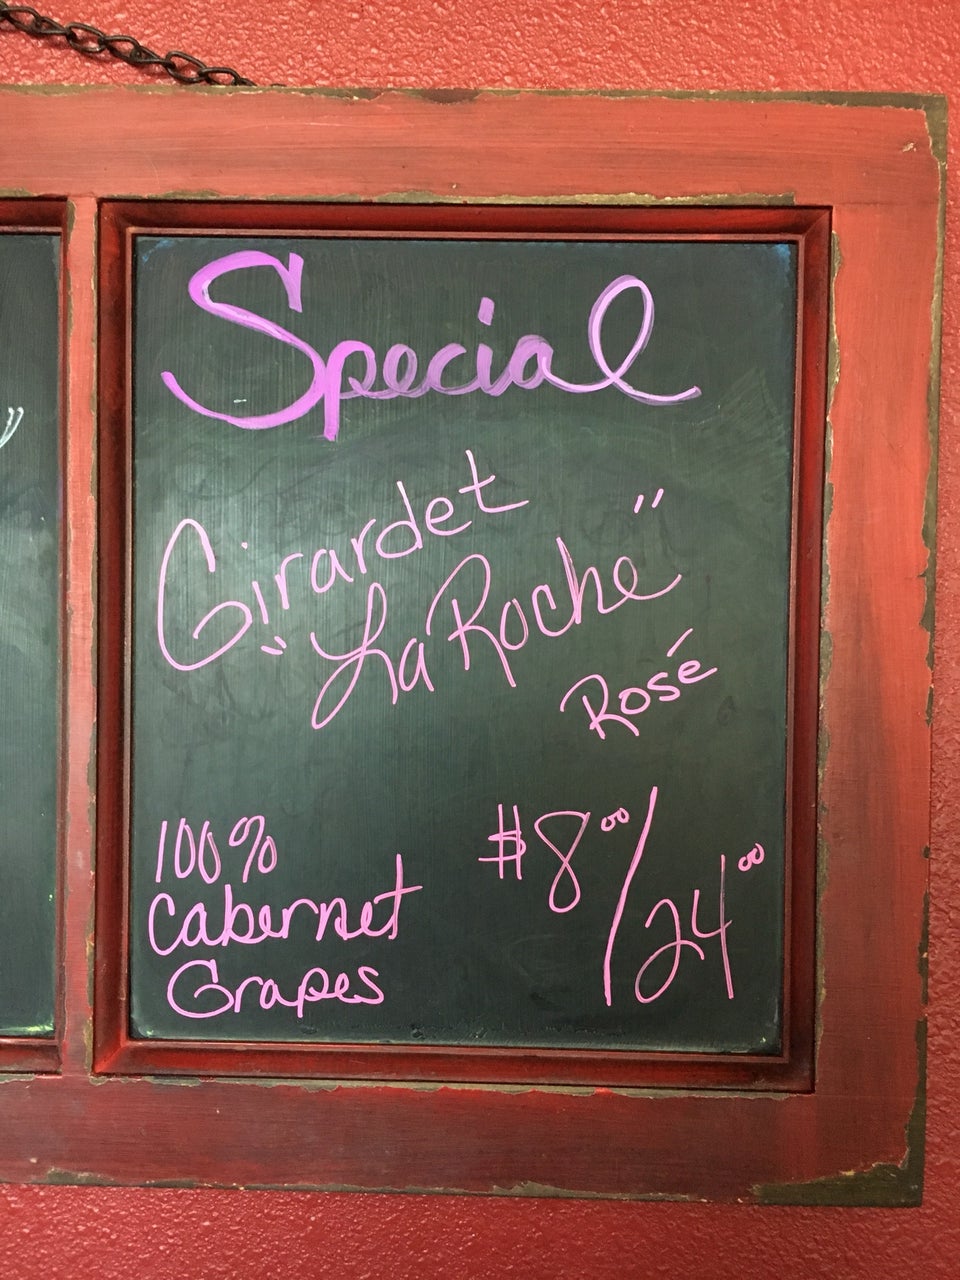 Special
Girardet
"La Roche"
Rosé
100%
Cabernet
Grapes
$8.00/24.00